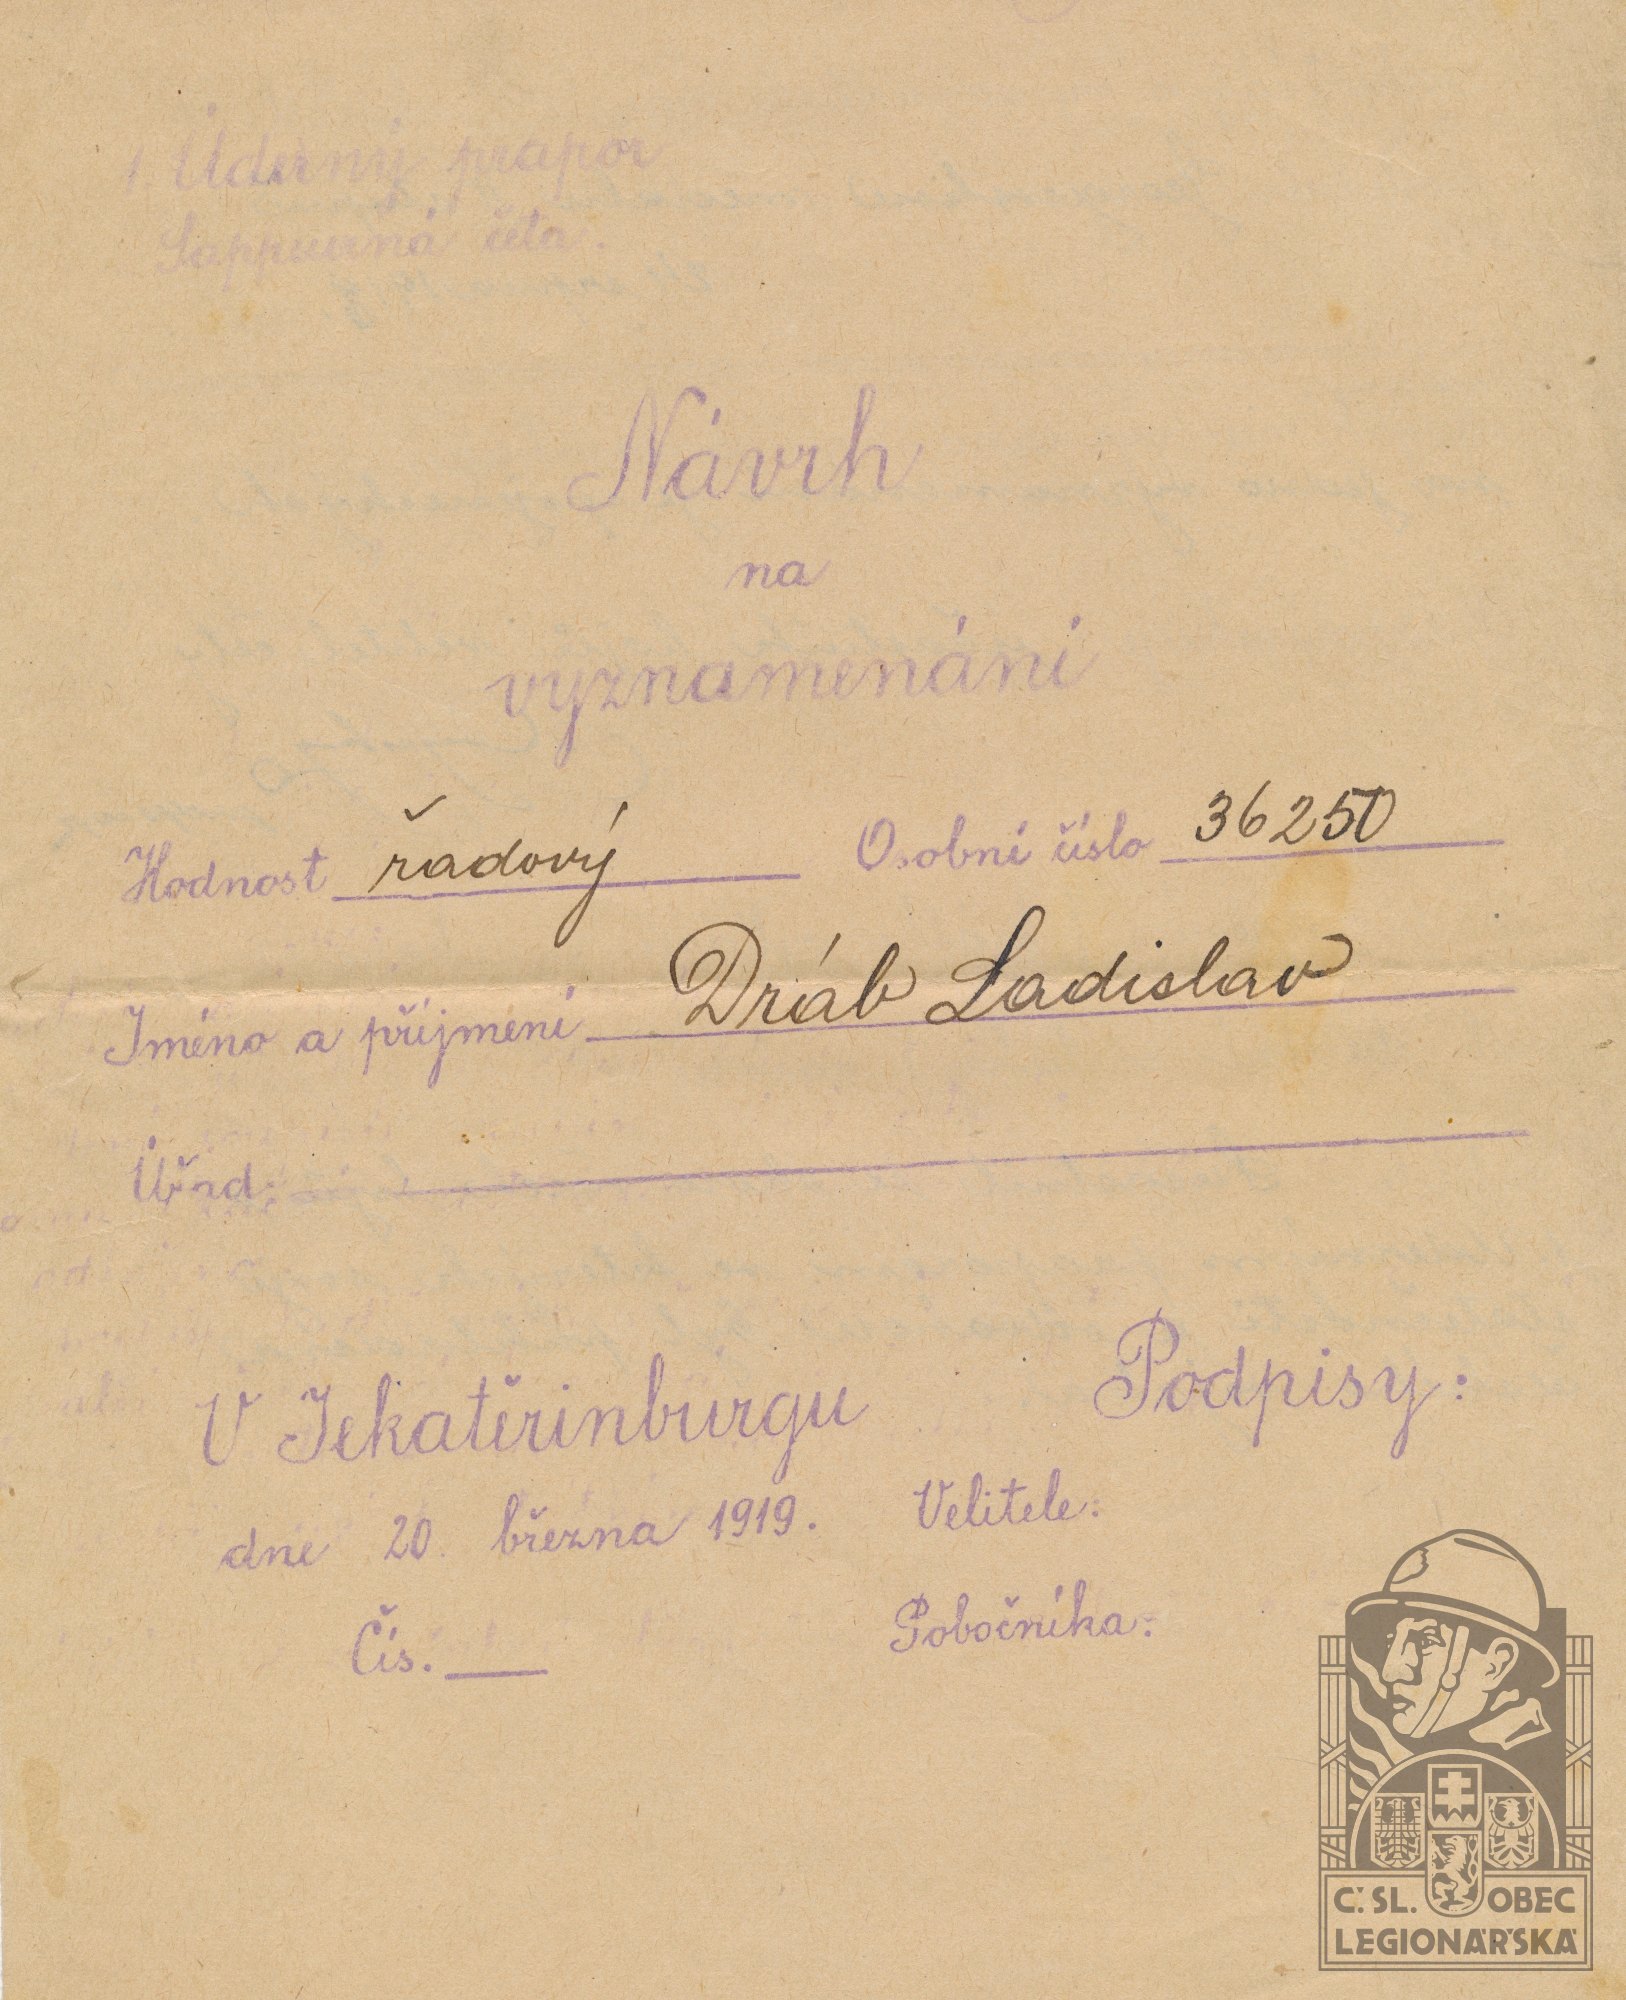 1 Úderný prapor
Sappeurná četa.
Návrh
na
vyznamenání
Hodnost řadový Osobní číslo 36250
Jméno a příjmení Dráb Ladislav
Úřad:
V Jekatěrinburgu
dne 20. března 1919.
Čís.
Podpisy:
Velitele:
Pobočníka:
Č. SL. OBEC
LEGIONÁŘSKÁ